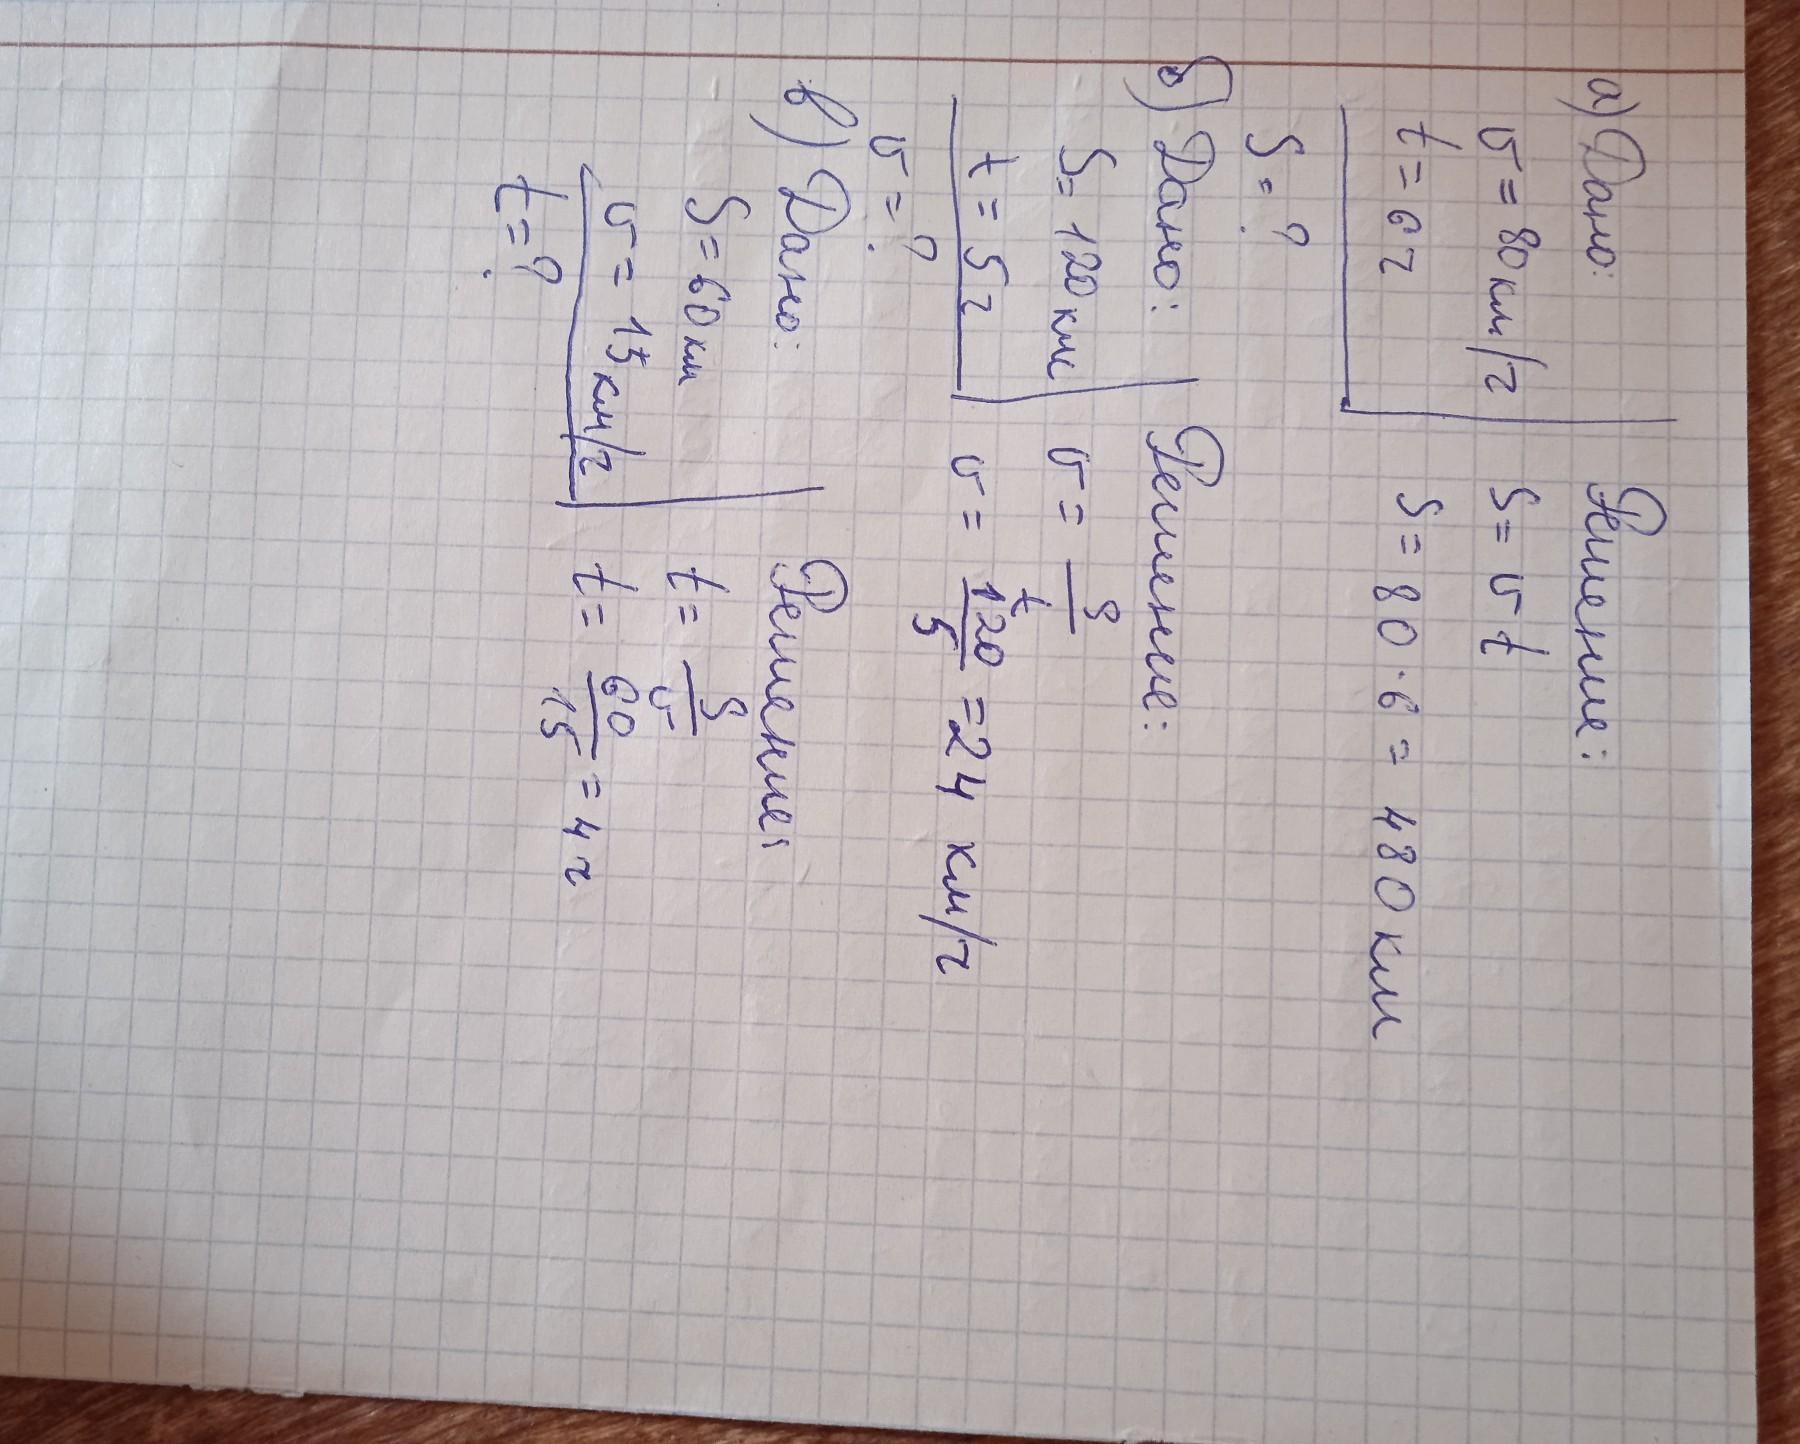 а) Дано:
υ = 80 км/ч
t = 6 ч
S = ?
Решение:
S = υ t
S = 80 · 6 = 480 км
б) Дано:
S = 120 км
t = 5 ч
υ = ?
Решение:
υ = S/t
υ = 120/5 = 24 км/ч
в) Дано:
S = 60 км
υ = 15 км/ч
t = ?
Решение:
t = S/υ
t = 60/15 = 4 ч